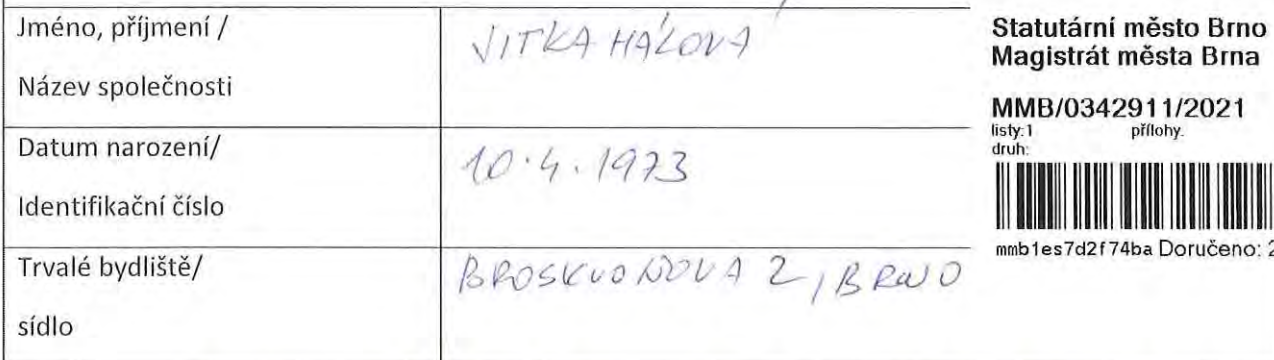 Jméno, příjmení /
Název společnosti
JITKA HÁLOVÁ
Datum narození/
Identifikační číslo
10.4.1973
Trvalé bydliště/
sídlo
BROSKVOŇOVÁ 2, BRNO
Statutární město Brno
Magistrát města Brna
MMB/0342911/2021
listy:1 přílohy:
druh:
mmb1es7d2f74ba Doručeno: 2